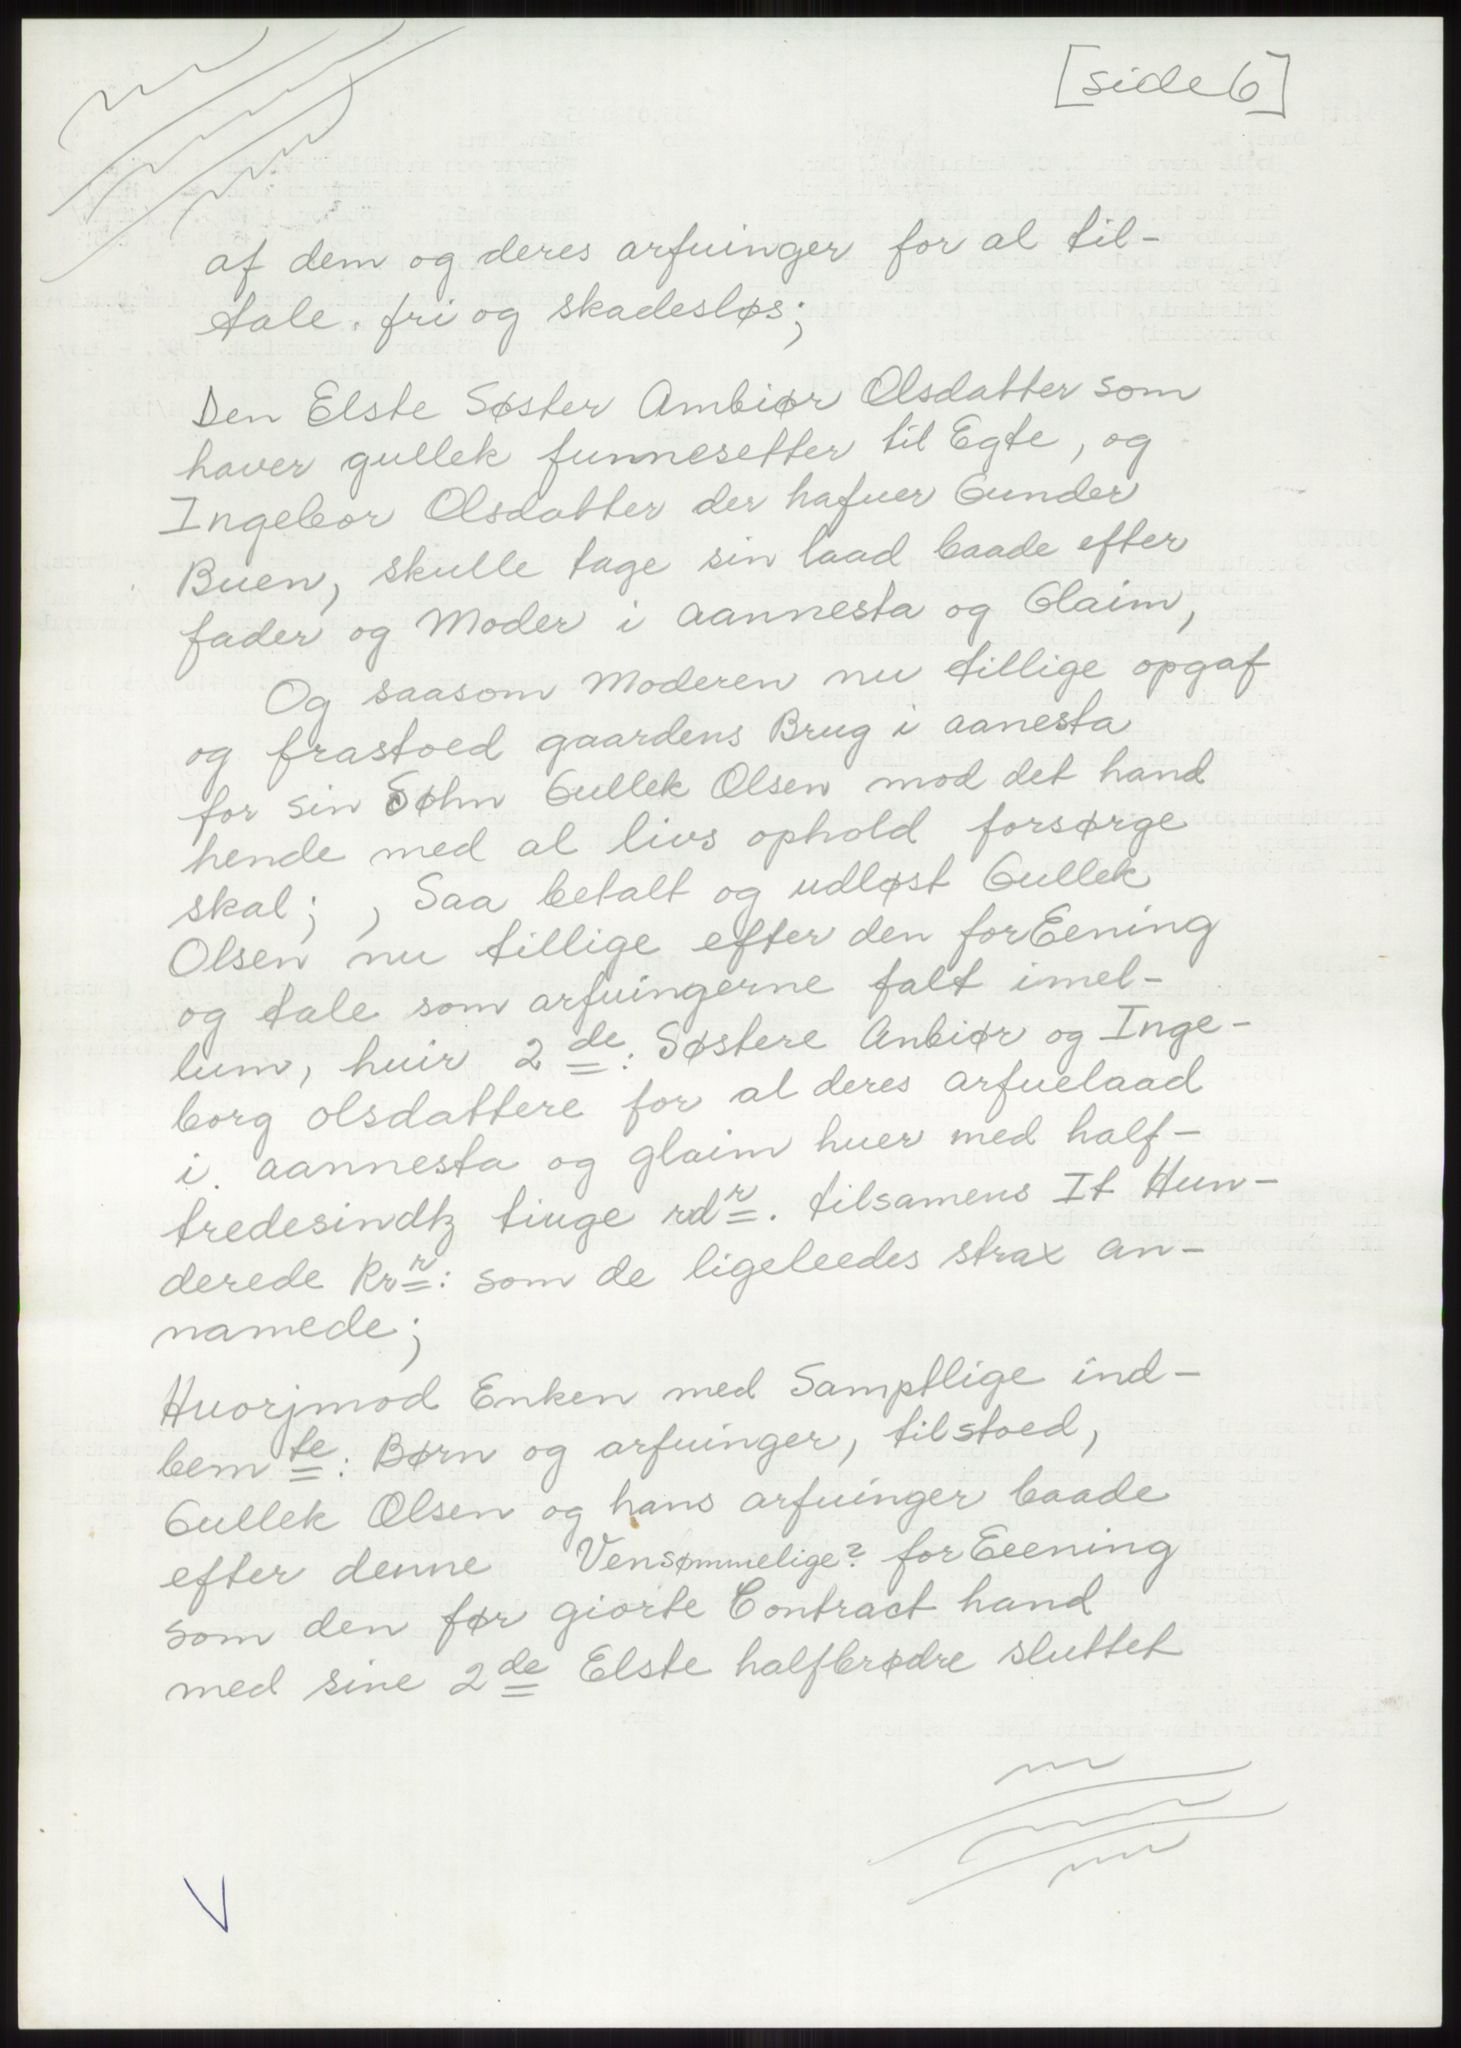 [side 6]
af dem og deres arfuinger for al til-
tale. fri og skadesløs;
Den Elste Søster Ambiør Olsdatter som
haver gullek funnesetter til Egte, og
Ingebor Olsdatter der hafuer Gunder
Buen, skulle tage sin laad baade efter
fader og Moder i aannesta og Glaim,
Og saasom Moderen nu tillige opgaf
og frastoed gaardens Brug i aanesta
for sin Søhn Gullek Olsen mod det hand
hende med al livs ophold forsørge
skal; , Saa betalt og udløst Gullek
Olsen nu tillige efter den forEening
og tale som arfuingerne falt imel-
lum, huir 2de: Søstere Anbiør og Inge-
borg olsdattere for al deres arfuelaad
i. aannesta og glaim huer med half-
tredesindtz tiuge rdr. tilsamens It Hun-
derede Rrr: som de ligeleedes strax an-
namede;
Huorjmod Enken med Samptlige ind-
bemte: Børn og arfuinger, tilstoed,
Gullek Olsen og hans arfuinger baade
efter denne Vensømmelige? forEeening
som den før giorte Contract hand
med sine 2de Elste halfbrødre sluttet